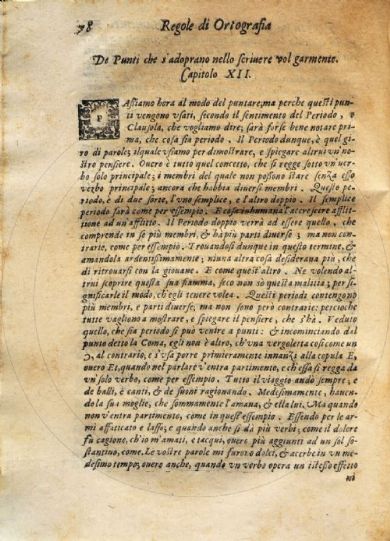 78 Regole di Ortografia
De Punti che s'adoprano nello scriuere vol garmente.
Capitolo XII.
PAssiamo hora al modo del puntare, ma perche questi pun-
ti vengono vsati, secondo il sentimento del Periodo, ò
Clausola, che vogliamo dire, sarà forse bene notare pri-
ma, che cosa sia periodo. Il Periodo dunque, è quel gi-
ro di parole, il quale vsiamo per dimostrare, e spiegare altrui vn no-
stro pensiere. Ouero è tutto quel concetto, che si regge sotto vn ver-
bo solo principale; i membri del quale non possono stare senza esso
verbo principale, ancora che habbia diuersi membri. Questo pe-
riodo, è di due sorte, l'vno semplice, e l'altro doppio. Il semplice
periodo sarà come per essempio. E cosa inhumana l'accrescere afflitti-
one ad vn'afflitto. Il Periodo doppio verrà ad essere quello, che
comprende in sè più membri, & hà più parti diuerse; ma non con-
trarie, come per essempio. Trouandosi dunque in questo termine, &
amandola ardentissimamente; niuna altra cosa desideraua più, che
di ritrouarsi con la giouane. E come quest'altro. Ne volendo al-
trui scoprire questa sua fiamma, seco non sò questa malitia; per si-
gnificarle il modo, ch'egli tenere volea. Questi periodi contengono
più membri, e parti diuerse; ma non sono però contrarie: percioche
tutte vagliono a mostrare, e spiegare il pensiere, che s'hà. Veduto
quello, che sia periodo si può venire a punti: & incominciando dal
punto detto la Coma, egli non è altro, ch'vna vergoletta così come vn
Ɔ, al contrario, e s'vsa porre primieramente innanzi alla copula E,
ouero Et, quando nel parlare v'entra partimento, e ch'essa si regga da
vn solo verbo, come per essempio. Tutto il viaggio andò sempre; e
de balli, è canti, & de suoni ragionando. Medesimamente, hauen-
dola sua moglie, che sommamente l'amaua, & ella lui. Ma quando
non v'entra partimento, come in quest'essempio. Essendo per le ar-
mi affaticato e lasso; e quando anche si dà più verbi; come il dolore
fù cagione, ch'io m'amati, e tacqui, ouero più aggiunti ad vn sol so-
stantiuo, come. Le vostre parole mi furono dolci, & acerbe in vn me-
desimo tempo; ouero anche, quando vn verbo opera vn istesso effetto